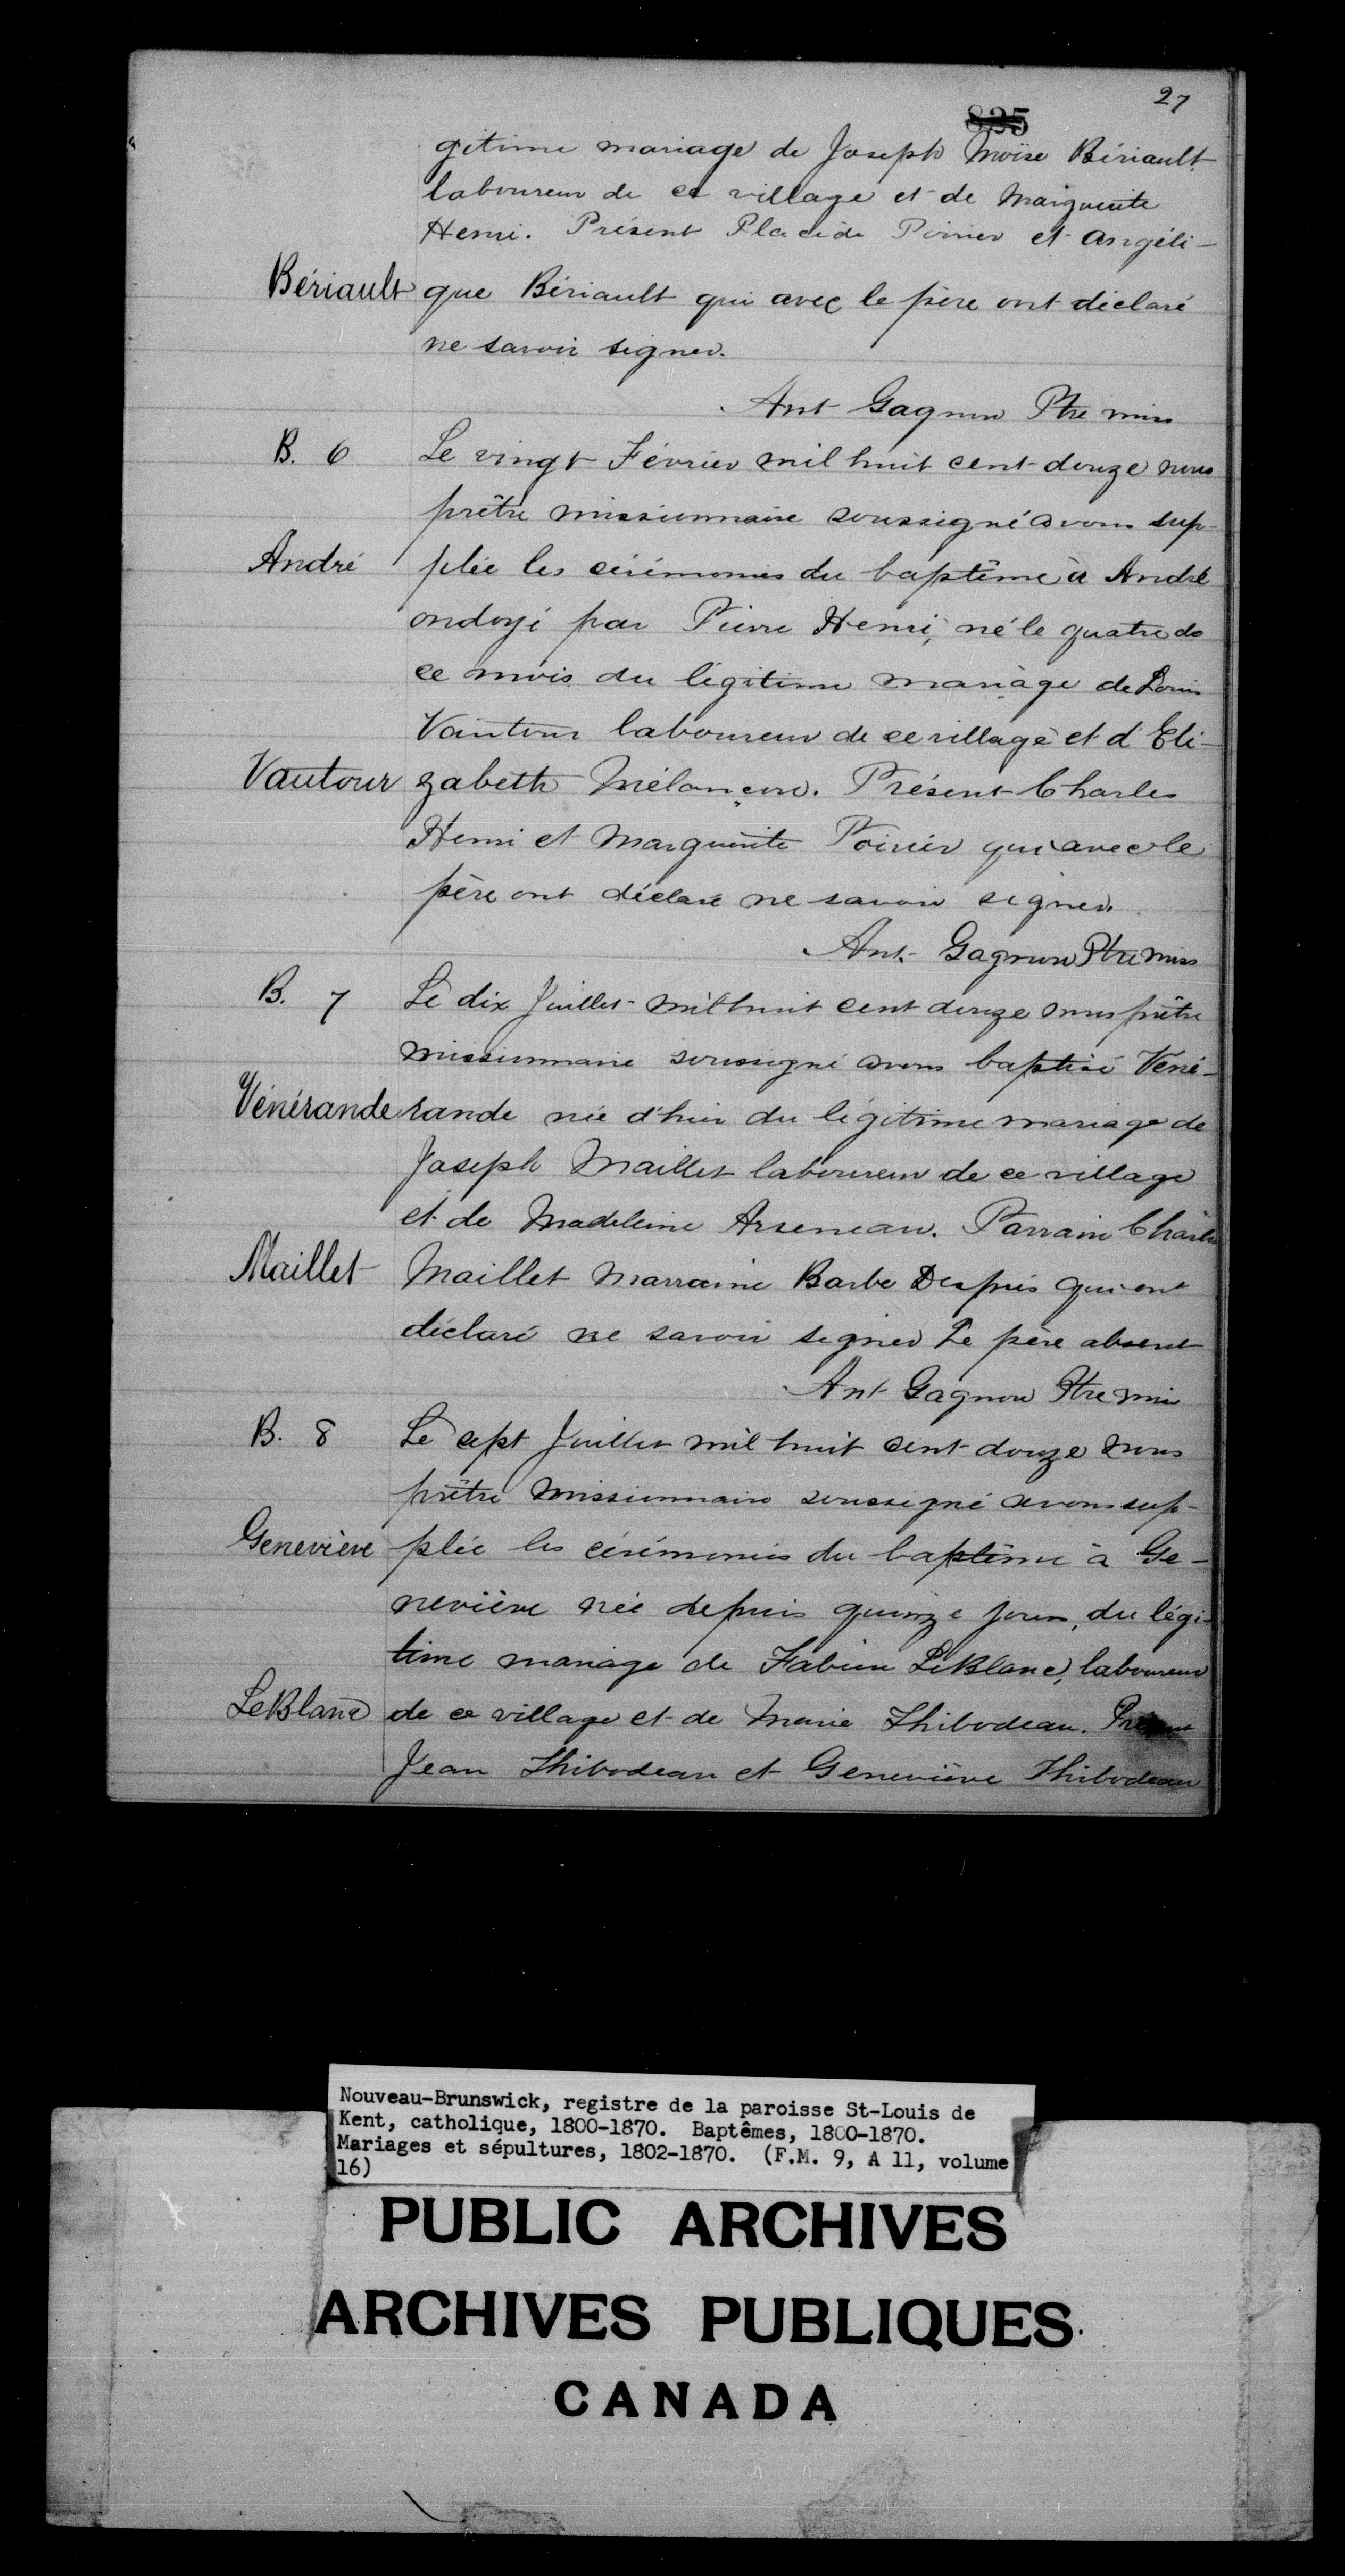 27
835
gitime mariage de Joseph Moïse Bériault
laboureur de ce village et de Marguerite
Henri. Présent Placide Poirier et Angéli-
Bériault que Bériault qui avec le père ont déclaré
ne savoir signer.
Ant Gagnon Ptre miss
B. 6 Le vingt Février mil huit cent douze nous
prêtre missionnaire soussigné avons sup-
André plée les cérémonies du baptême à André
ondoyé par Pierre Henri, né le quatre de
ce mois du légitime mariage de Louis
Vautour laboureur de ce village et d'Eli-
Vautour zabeth Mélançon. Présent Charles
Henri et Marguerite Poirier qui avec le
père ont déclaré ne savoir signer.
Ant. Gagnon Ptre miss
B. 7 Le dix Juillet mil huit cent douze nous prêtre
missionnaire soussigné avons baptisé Véné-
Vénérande rande née d'hier du légitime mariage de
Joseph Maillet laboureur de ce village
et de Madeleine Arseneau. Parrain Charles
Maillet Maillet Marraine Barbe Després qui ont
déclaré ne savoir signer Le père absent
Ant Gagnon Ptre mis
B. 8 Le sept Juillet mil huit cent douze nous
prêtre missionnaire soussigné avons sup-
Geneviève plée les cérémonies du baptême à Ge-
neviève née depuis quinze jours, du légi-
time mariage de Fabien LeBlanc, laboureur
LeBlanc de ce village et de Marie Thibodeau. Présent
Jean Thibodeau et Geneviève Thibodeau
Nouveau-Brunswick, registre de la paroisse St-Louis de
Kent, catholique, 1800-1870. Baptêmes, 1800-1870.
Mariages et sépultures, 1802-1870. (F.M. 9, A 11, volume
16)
PUBLIC ARCHIVES
ARCHIVES PUBLIQUES
CANADA